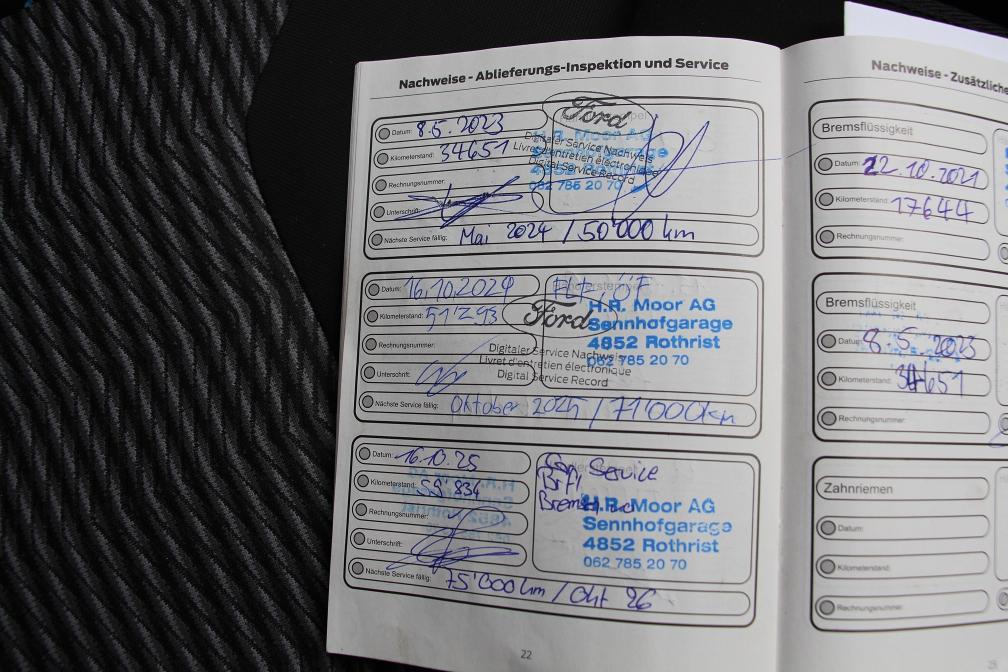 Nachweise - Ablieferungs-Inspektion und Service
Datum: 8.5.2023
Kilometerstand: 34651
Rechnungsnummer:
Unterschrift:
Nächste Service fällig: Mai 2024 / 50'000 km
Ford
Digitaler Service Nachweis
Livret d'entretien électronique
Digital Service Record
H.R. Moor AG
Sennhofgarage
4852 Rothrist
062 785 20 70
Datum: 16.10.2024
Kilometerstand: 51'293
Rechnungsnummer:
Unterschrift:
Nächste Service fällig: Oktober 2025 / 71'000km
Ford
Digitaler Service Nachweis
Livret d'entretien électronique
Digital Service Record
H.R. Moor AG
Sennhofgarage
4852 Rothrist
062 785 20 70
Datum: 16.10.25
Kilometerstand: 59'834
Rechnungsnummer:
Unterschrift:
Nächste Service fällig: 75'000 km / Okt 26
Service
H.R. Moor AG
Sennhofgarage
4852 Rothrist
062 785 20 70
22
Nachweise - Zusätzliche
Bremsflüssigkeit
Datum: 22.10.2021
Kilometerstand: 17644
Rechnungsnummer:
Bremsflüssigkeit
Datum: 8.5.2023
Kilometerstand: 34651
Rechnungsnummer:
Zahnriemen
Datum:
Kilometerstand:
Rechnungsnummer: